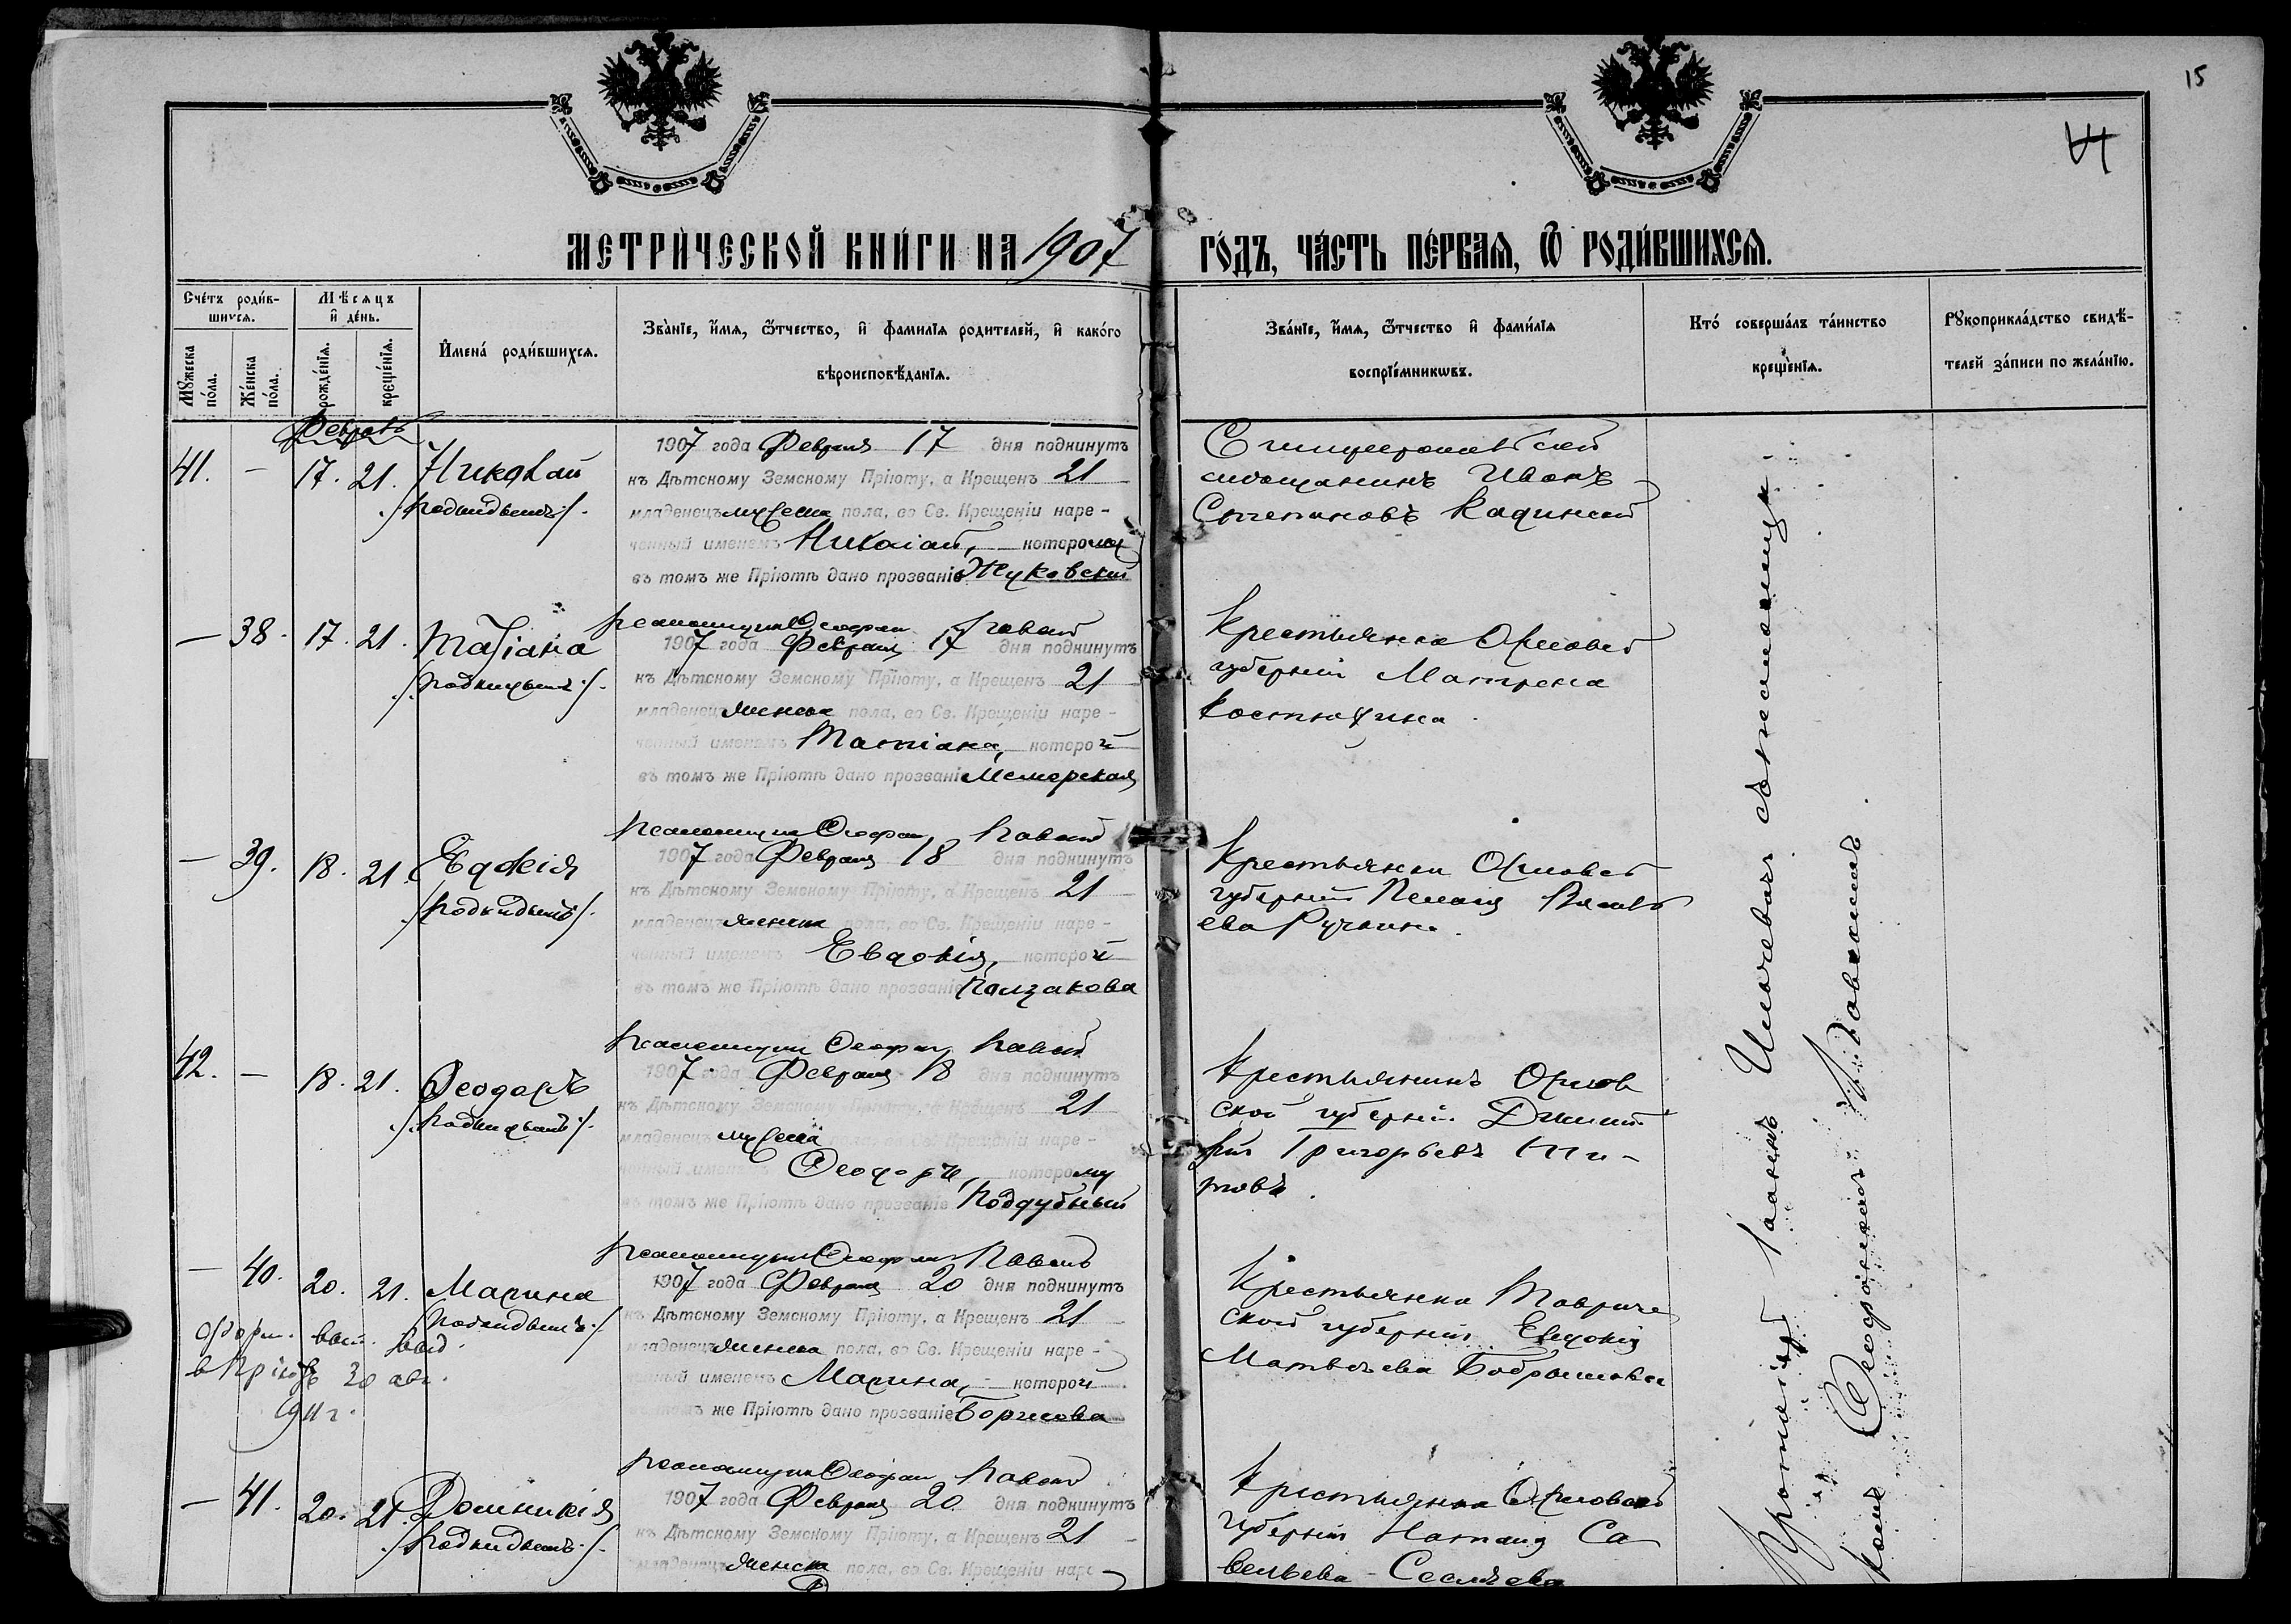 15
МЕТРИЧЕСКОЙ КНИГИ НА 1907 ГОДЪ, ЧАСТЬ ПЕРВАЯ, Ѿ РОДИВШИХСЯ.
Счетъ родив-
шихся.
Мѣсяцъ
и день.
Мужеска
пола.
Женска
пола.
рожденія.
крещенія.
Имена родившихся.
Званіе, имя, ѿчество, и фамилія родителей, и какого
вѣроисповѣданія.
Званіе, имя, ѿчество и фамилія
воспріемникωвъ.
Кто совершалъ таинство
крещенія.
Рукоприкладство свидѣ-
телей записи по желанію.
Февраль
41. — 17. 21. Николай
/подкидышъ/.
1907 года Февраля 17 дня подкинутъ
къ Дѣтскому Земскому Пріюту, а Крещенъ 21
младенецъ мужеска пола, во Св. Крещеніи наре-
ченный именемъ Николай, которому
въ томъ же Пріютѣ дано прозваніе Жуковскій
Симферопольскій
мѣщанинъ Иванъ
Степановъ
— 38. 17. 21. Татіана
/подкидышъ/.
Псаломщикъ Ѳеофан
1907 года Февраля 17 дня подкинутъ
къ Дѣтскому Земскому Пріюту, а Крещенъ 21
младенецъ женска пола, во Св. Крещеніи наре-
ченный именемъ Татіана, которой
въ томъ же Пріютѣ дано прозваніе
Крестьянка Орловской
губерніи Матрена
— 39. 18. 21. Евдокія
/подкидышъ/.
Псаломщикъ Ѳеофан
1907 года Февраля 18 дня подкинутъ
къ Дѣтскому Земскому Пріюту, а Крещенъ 21
младенецъ женска пола, во Св. Крещеніи наре-
ченный именемъ Евдокія, которой
въ томъ же Пріютѣ дано прозваніе
Крестьянка Орловской
губерніи Пелагія
42. — 18. 21. Ѳеодоръ
/подкидышъ/.
Псаломщикъ Ѳеофан
1907 года Февраля 18 дня подкинутъ
къ Дѣтскому Земскому Пріюту, а Крещенъ 21
младенецъ мужеска пола, во Св. Крещеніи наре-
ченный именемъ Ѳеодоръ, которому
въ томъ же Пріютѣ дано прозваніе Поддубный
Крестьянинъ Орлов
ской губерніи Димит
рій Григорьевъ Ти-
товъ.
— 40. 20. 21. Марина
/подкидышъ/
в Пріютъ 30 авг.
1911 г.
Псаломщикъ Ѳеофан
1907 года Февраля 20 дня подкинутъ
къ Дѣтскому Земскому Пріюту, а Крещенъ 21
младенецъ женска пола, во Св. Крещеніи наре-
ченный именемъ Марина, которой
въ томъ же Пріютѣ дано прозваніе Борисова
Крестьянка Тавриче
ской губерніи Евдокія
Матвѣева
— 41. 20. 21. Домникія
/подкидышъ/.
Псаломщикъ Ѳеофан
1907 года Февраля 20 дня подкинутъ
къ Дѣтскому Земскому Пріюту, а Крещенъ 21
младенецъ женска пола, во Св. Крещеніи наре-
Крестьянка Орловской
губерніи Наталія Са
вельева
Протоіерей Іоаннъ